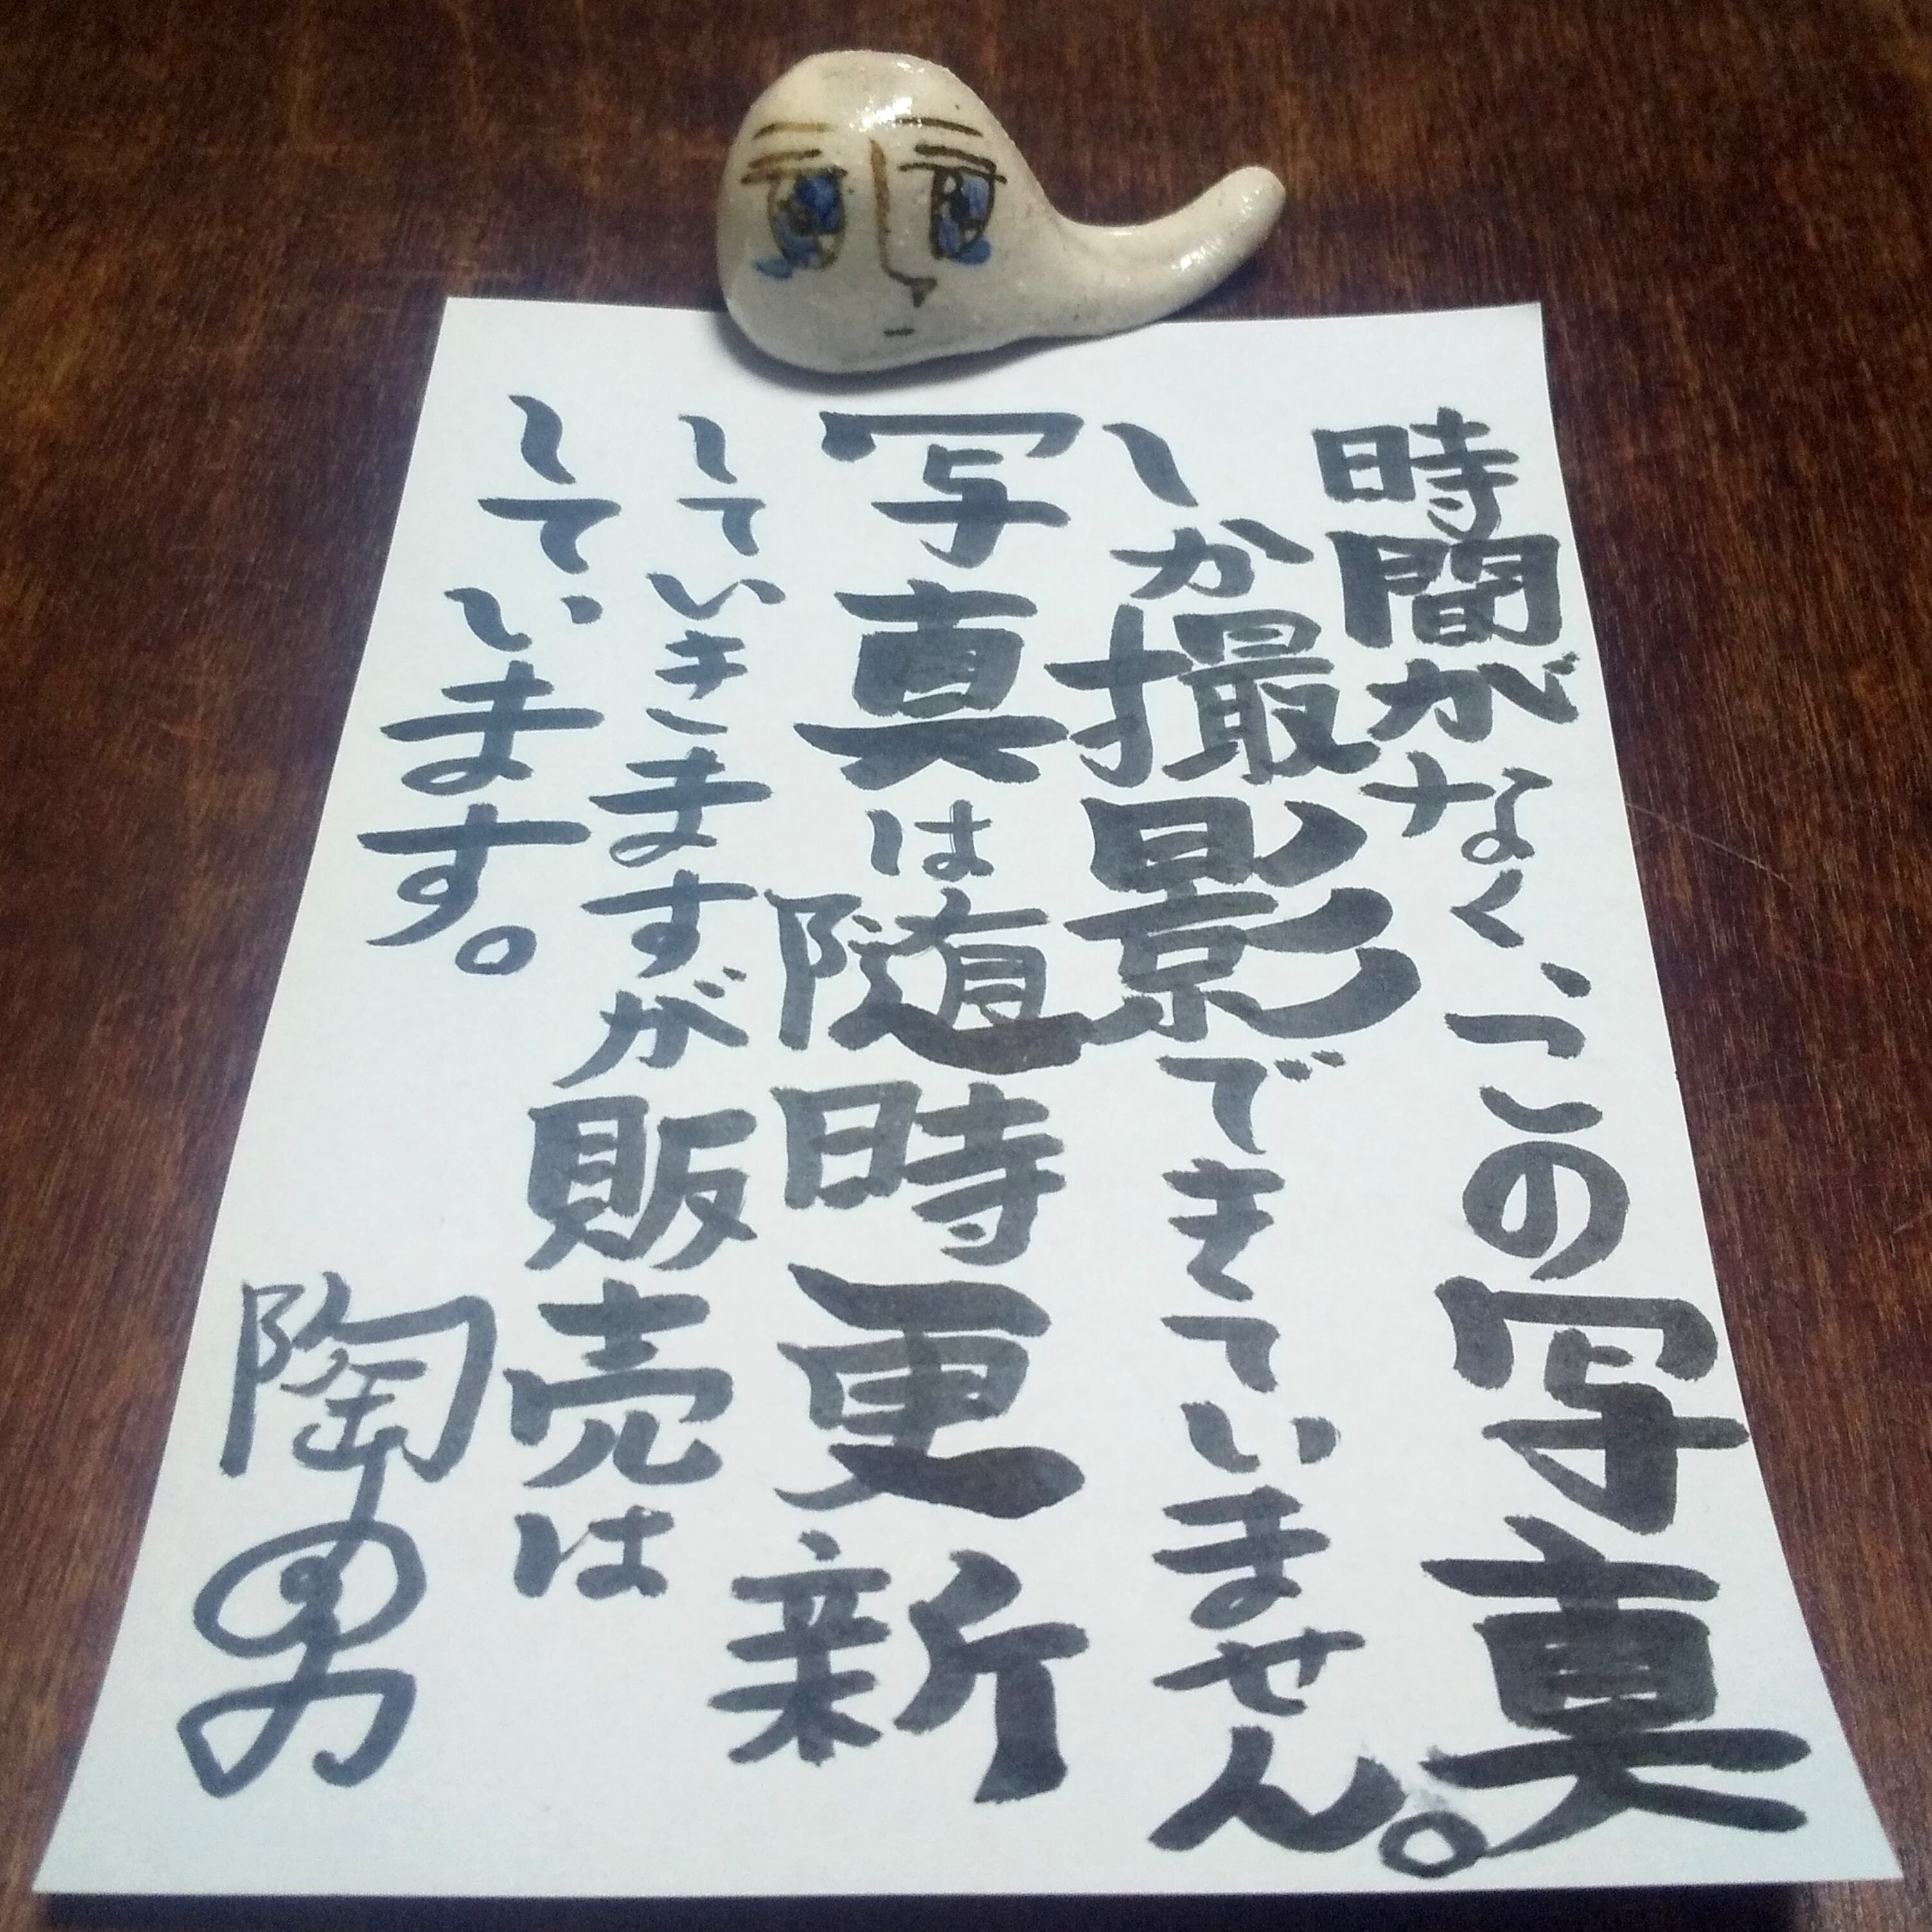 時間がなく、この写真
しか撮影できていません。
写真は随時更新
していきますが販売は
しています。
陶男